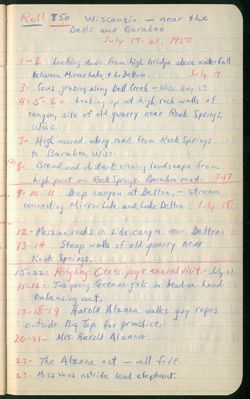 Roll 850 Wisconsin – near the
Dells and Baraboo
July 17-21, 1950
1-2 Looking down from high bridge above waterfall
between Mirror Lake & L. Delton. July 17
3- Cows grazing along Dell Creek – Wisc. Hwy 23
4-5-6- Looking up at high rock walls of
canyon, site of old quarry near Rock Springs,
Wisc.
7- High mound along road from Rock Springs
to Baraboo, Wisc.
8- Broad and distant rising landscape from
high point on Rock Springs, Baraboo road. 7-17
9-10-11 Deep canyon at Delton, – stream
connecting Mirror Lake and Lake Delton. July 18
12- Mossy rocks in side canyon near Delton
13-14 Steep walls of old quarry near
Rock Springs.
15-22- Ringling Circus pays annual visit. July 21
15-16- Two young German girls in head-on-head
balancing act.
17-18-19 Harold Alzana walks guy ropes
outside Big Top for practice.
20-21- Mrs. Harold Alzana
22- The Alzana act – all five
23- Miss astride lead elephant.